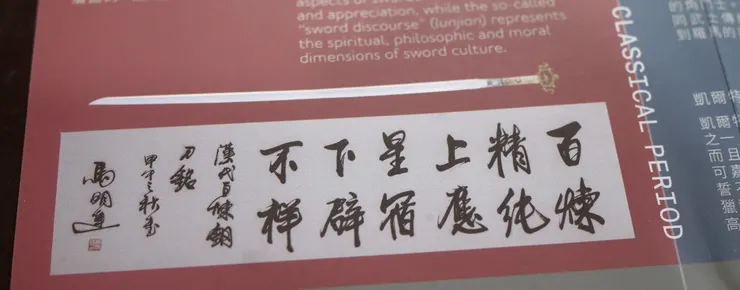 aspects of
and appreciation, while the so-called
"sword discourse" (lunjian) represents
the spiritual, philosophic and moral
dimensions of sword culture.
百煉
精純
上應
星宿
下辟
不祥
漢代百煉鋼
刀銘
甲午之秋書
馬明達
CLASSICAL PERIOD
的角鬥士
同武士傳
到羅馬的
凱爾特
凱爾特